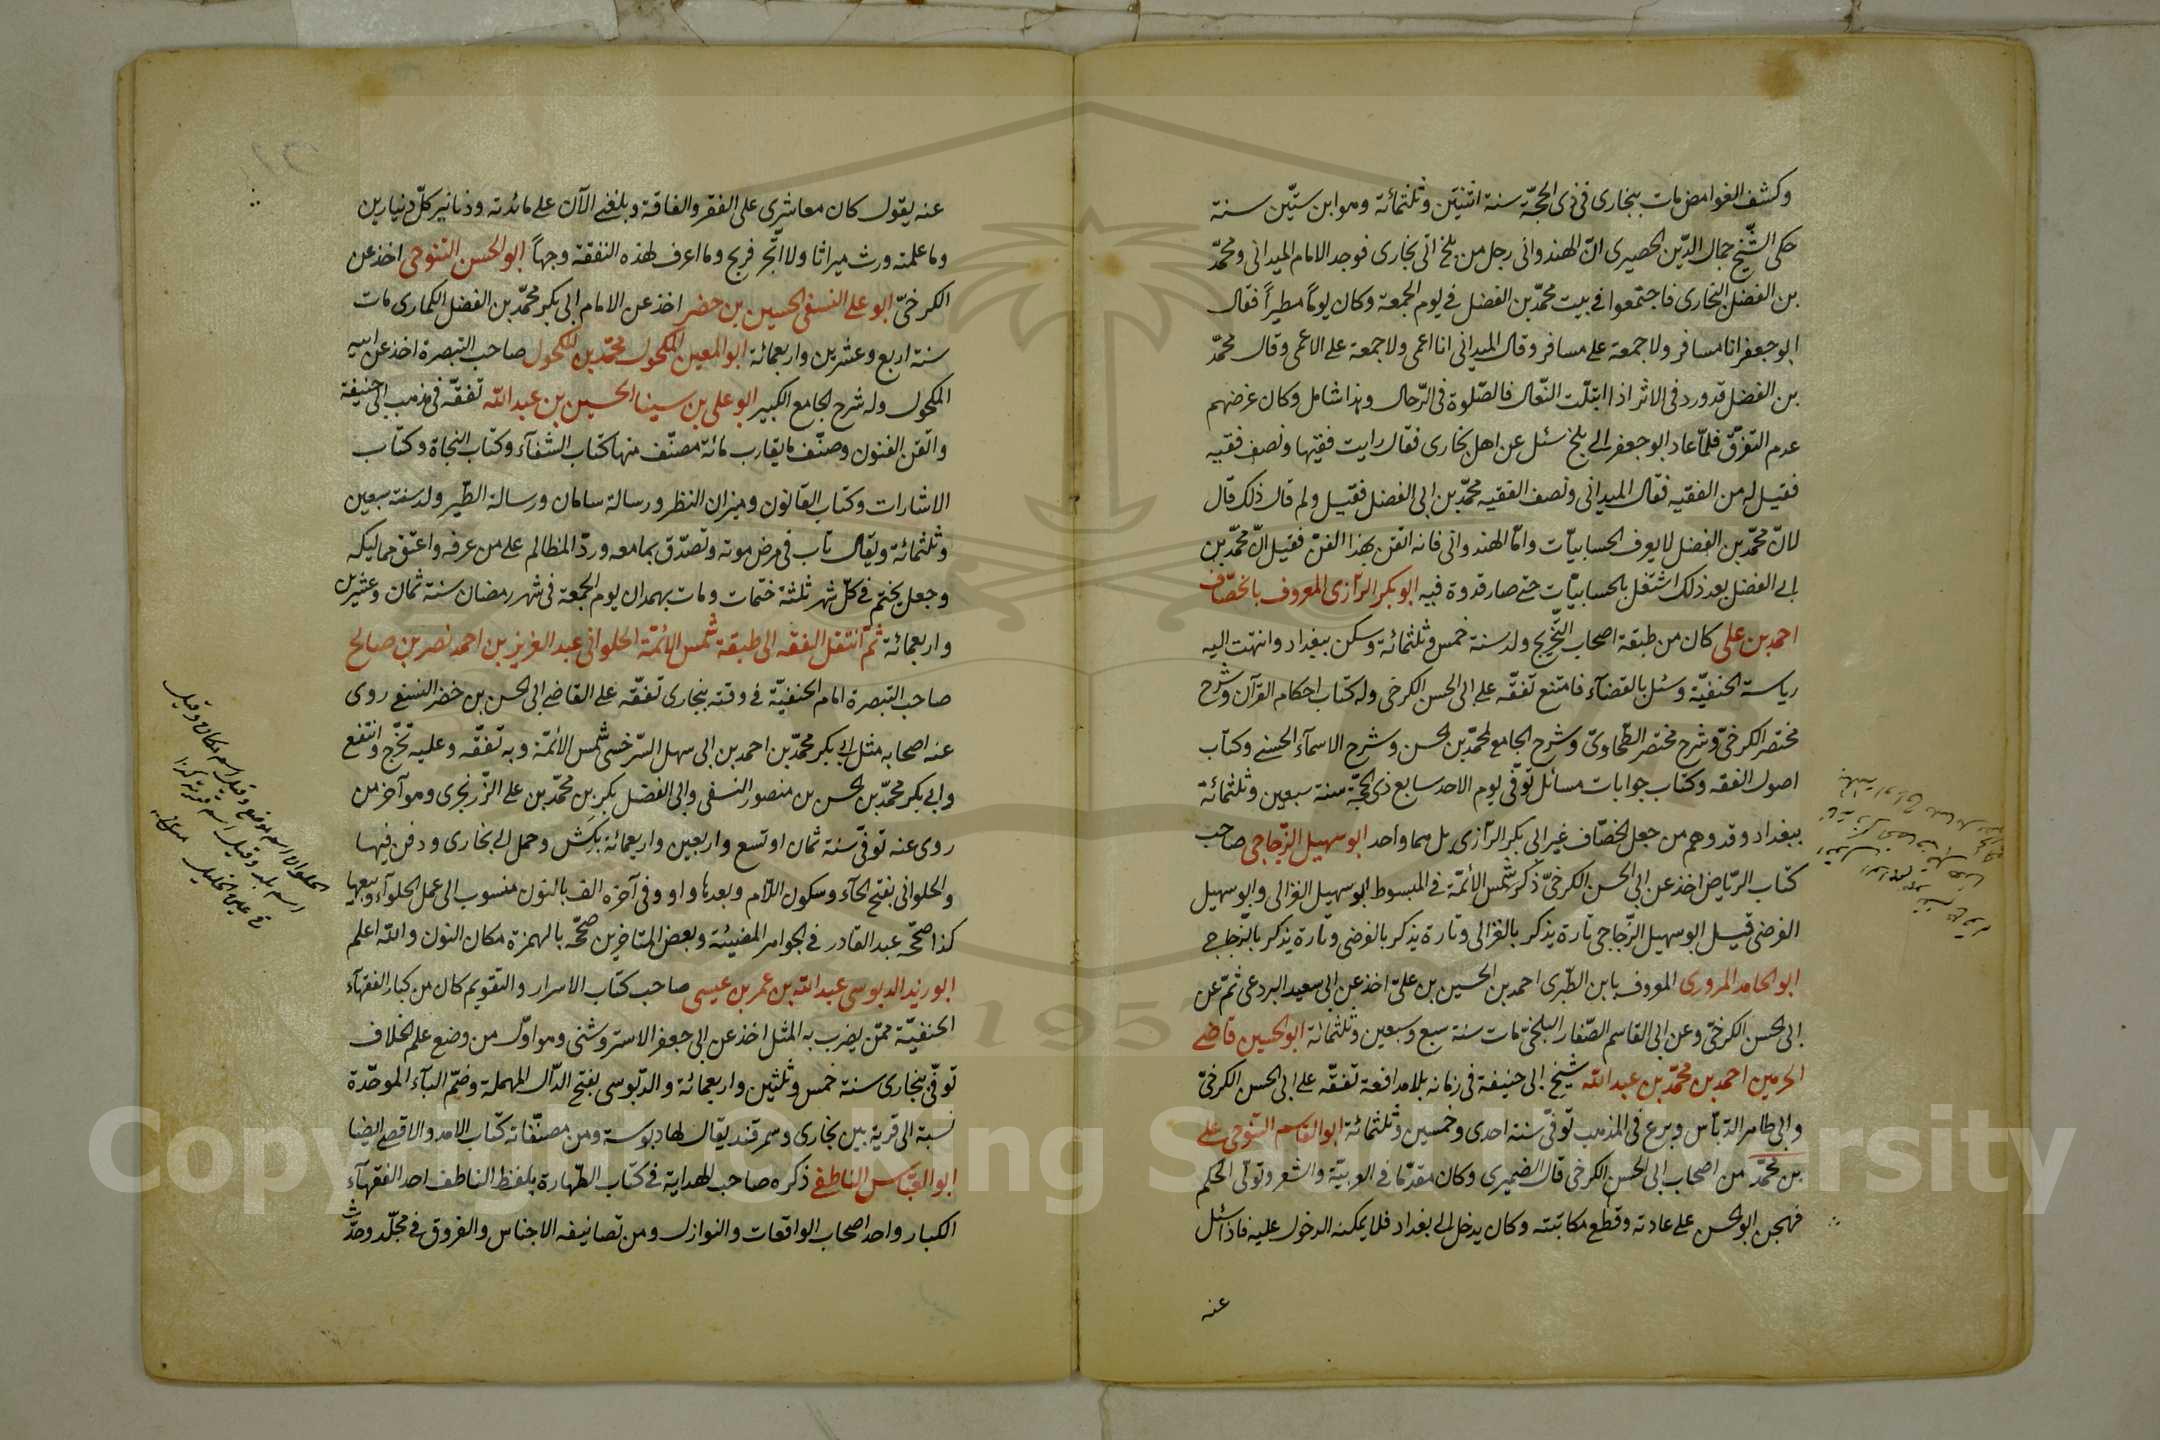 وكشف الغوامض مات ببخارى فى ذى الحجّة سنة اثنتين وثلثمائة وهو ابن ستّين سنة
حكى الشّيخ جمال الدّين الحصيرى انّ الهندوانى رجل من بلخ اتى بخارى فوجد الامام الميدانى ومحمّد
بن الفضل البخارى فاجتمعوا فى بيت محمّد بن الفضل فى يوم الجمعة وكان يوماً مطيراً فقال
ابو جعفر انا مسافر ولا جمعة على مسافر وقال الميدانى انا اعمى ولا جمعة على الاعمى وقال محمّد
بن الفضل قد ورد فى الاثر اذا ابتلّت النّعال فالصّلوة فى الرّحال وهذا شامل وكان غرضهم
عدم التفرّق فلمّا عاد ابو جعفر الى بلخ سئل عن اهل بخارى فقال رايت فقيها ونصف فقيه
فقيل له من الفقيه فقال الميدانى ونصف الفقيه محمّد بن ابى الفضل فقيل ولم قال ذلك قال
لانّ محمّد بن الفضل لا يعرف الحسابيّات وامّا الهندوانى فانه اتقن بهذا الفنّ فقيل انّ محمّد بن
ابى الفضل بعد ذلك اشتغل بالحسابيّات حتى صار قدوة فيه ابو بكر الرّازى المعروف بالخصّاف
احمد بن على كان من طبقة اصحاب التّخريج ولد سنة خمس وثلثمائة وسكن ببغداد وانتهت اليه
رياسة الحنفيّة وسئل بالقضاء فامتنع تفقّه على ابى الحسن الكرخى وله كتاب احكام القرآن وشرح
مختصر الكرخىّ وشرح مختصر الطّحاوىّ وشرح الجامع لمحمّد بن الحسن وشرح الاسماء الحسنى وكتاب
اصول الفقه وكتاب جوابات مسائل توفّى يوم الاحد سابع ذى الحجّة سنة سبعين وثلثمائة
ببغداد وقد وهم من جعل الخصّاف غير ابى بكر الرّازى بل هما واحد ابو سهيل الزّجاجى صاحب
كتاب الرّياض اخذ عن ابى الحسن الكرخىّ ذكر شمس الائمّة فى المبسوط ابو سهيل الغزالى وابو سهيل
الفرضى قيل ابو سهيل الزّجاجى تارة يذكر بالغزالى وتارة يذكر بالفرضى وتارة يذكر بالزّجاجى
ابو الحامد المرورى المعروف بابن الطّبرى احمد بن الحسين بن علىّ اخذ عن ابى سعيد البردعى ثمّ عن
ابى الحسن الكرخىّ وعن ابى القاسم الصّفار البلخىّ مات سنة سبع وسبعين وثلثمائة ابو الحسين قاضى
الحرمين احمد بن محمّد بن عبد اللّه شيخ ابى حنيفة فى زمانه بلا مدافعة تفقّه على ابى الحسن الكرخىّ
وابى طاهر الدّبّاس وبرع فى المذهب توفّى سنة احدى وخمسين وثلثمائة ابو القاسم التنوخى على
بن محمّد من اصحاب ابى الحسن الكرخى قال الضميرى وكان مقدّما فى العربيّة والشعر وتولّى الحكم
فهجن ابو الحسن على عادته وقطع مكاتبته وكان يدخل الى بغداد فلا يمكنه الدخول عليه فاذا سئل
عنه
عنه يقول كان معاشرى على الفقر والفاقة وبلغنى الآن على مائدته ودنانير كلّ دنيارين
وما علمته ورث ميراثا ولا اتّجر فربح وما اعرف لهذه النفقة وجهاً ابو الحسن التنوخى اخذ عن
الكرخىّ ابو على النسفى الحسين بن خضر اخذ عن الامام ابى بكر محمّد بن الفضل الكمارى مات
سنة اربع وعشرين واربعمائة ابو المعين المكحول محمّد بن المكحول صاحب التبصرة اخذ عن ابيه
المكحول وله شرح الجامع الكبير ابو على بن سينا الحسين بن عبد اللّه تفقّه فى مذهب ابى حنيفة
واتقن الفنون وصنّف ما يقارب مائة مصنّف منها كتاب الشفاء وكتاب النجاة وكتاب
الاشارات وكتاب القانون وميزان النظر ورسالة سامان ورسالة الطّير ولد سنة سبعين
وثلثمائة ويقال تاب فى مرض موته وتصدّق بما معه وردّ المظالم على من عرفه واعتق مماليكه
وجعل يختم فى كلّ شهر ثلثة ختمات ومات بهمدان يوم الجمعة فى شهر رمضان سنة ثمان وعشرين
واربعمائة ثمّ انتقل الفقه الى طبقة شمس الائمّة الحلوانى عبد العزيز بن احمد نصر بن صالح
صاحب التبصرة امام الحنفيّة فى وقته ببخارى تفقّه على القاضى ابى الحسن بن خضر النسفى روى
عنه اصحابه مثل ابى بكر محمّد بن احمد بن ابى سهل السّرخسى شمس الائمّة وبه تفقّه وعليه تخرّج وانتفع
وابى بكر محمّد بن الحسن بن منصور النسفى وابى الفضل بكر بن محمّد بن على الزّرنجرى وهو آخر من
روى عنه توفّى سنة ثمان او تسع واربعين واربعمائة بكش وحمل الى بخارى ودفن فيها
والحلوانى بفتح الحاء وسكون اللّام وبعدها واو وفى آخره الف بالنون منسوب الى عمل الحلواء وبيعها
كذا صحّحه عبد القادر فى الجواهر المضيئة وبعض المتاخرين صحّحه بالهمزة مكان النون واللّه اعلم
ابو زيد الدبوسى عبد اللّه بن عمر بن عيسى صاحب كتاب الاسرار والتقويم كان من كبار الفقهاء
الحنفيّة ممّن يضرب به المثل اخذ عن ابى جعفر الاستروشنى وهو اوّل من وضع علم الخلاف
توفّى ببخارى سنة خمس وثلثين واربعمائة والدّبوسى بفتح الدّال المهملة وضمّ الباء الموحّدة
نسبة الى قرية بين بخارى وسمرقند يقال لها دبوسة ومن مصنّفاته كتاب الامد والاقصى ايضا
ابو العبّاس الناطفى ذكره صاحب الهداية فى كتاب الطّهارة بلفظ الناطف احد الفقهاء
الكبار واحد اصحاب الواقعات والنوازل ومن تصانيفه الاجناس والفروق فى مجلّد وحدّث
الحلوان اسم موضع وقيل اسم مكان وقيل
اسم بلد وقيل اسم قرية
Copyright © King Saud University
1957